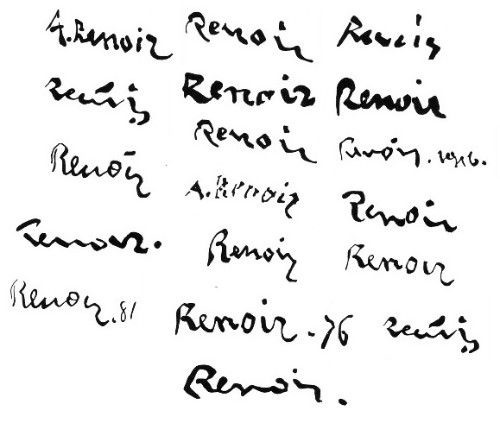 A. Renoir Renoir Renoir
Renoir Renoir Renoir
Renoir Renoir Renoir. 1916.
A. Renoir Renoir
Renoir. Renoir Renoir
Renoir. 81 Renoir. 76 Renoir
Renoir.